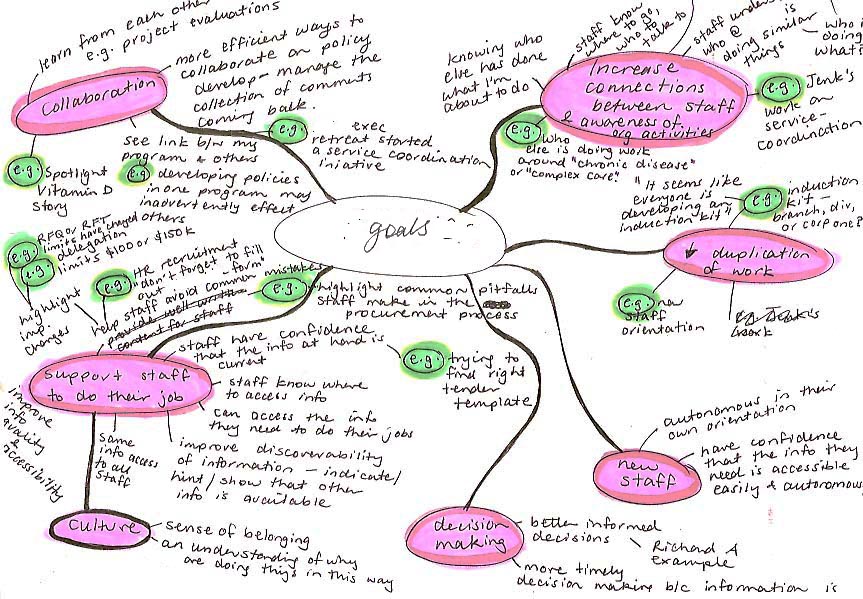 learn from each other
e.g. project evaluations
more efficient ways to
collaborate on policy
develop - manage the
collection of comments
coming back.
collaboration
e.g.
exec
retreat started
a service coordination
iniative
e.g.
Spotlight
Vitamin D
story
see link b/w my
program & others
e.g. developing policies
in one program may
inadvertently effect
others
knowing who
else has done
what I'm
about to do
staff know
where to go,
who to
talk to
staff unders
who @
doing similar
things
is
who i
doing
what's
increase
connections
between staff
& awareness of
org activities
e.g. Jenk's
work on
service-
coordination
e.g. who
else is doing work
around "chronic disease"
or "complex care"
goals
"It seems like
everyone is
developing an
induction kit"
e.g. induction
kit -
branch, div,
or corp one?
↓ duplication
of work
e.g. new
staff
orientation
work
RFQ or RFT
limits have changed
e.g. delegation
e.g. limits $100 or $150k
highlight
imp.
changes
e.g. HR recruitment
"don't forget to fill
out - form"
help staff avoid common mistakes
provide well written
content for staff
e.g. highlight common pitfalls
staff make in the
procurement process
support staff
to do their job
staff have confidence
that the info at hand is
current
e.g. trying to
find right
tender
template
staff know where
to access info
can access the info
they need to do their jobs
improve
info
quality
&
accessibility
same
info access
to all
staff
improve discoverability
of information - indicate/
hint/show that other
info is available
culture
sense of belonging
an understanding of why
are doing things in this way
decision
making
better informed
decisions
Richard A
example
more timely
decision making b/c information is
new
staff
autonomous in their
own orientation
have confidence
that the info they
need is accessible
easily & autonomous